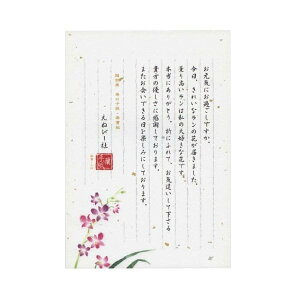 お元気にお過ごしですか。
今日、きれいなランの花が届きました。
薫り高いランは私の大好きな花です。
本当にありがとう。折にふれて、お気遣いして下さる
貴方の優しさに感謝しております。
またお会いできる日を楽しみにしております。
えぬびー社